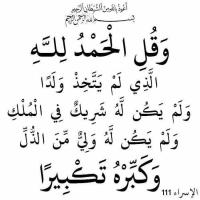 أعوذ بالله من الشيطان الرجيم
بسم الله الرحمن الرحيم
وَقُلِ الْحَمْدُ لِلَّهِ
الَّذِي لَمْ يَتَّخِذْ وَلَدًا
وَلَمْ يَكُن لَّهُ شَرِيكٌ فِي الْمُلْكِ
وَلَمْ يَكُن لَّهُ وَلِيٌّ مِّنَ الذُّلِّ
وَكَبِّرْهُ تَكْبِيرًا
الإسراء 111